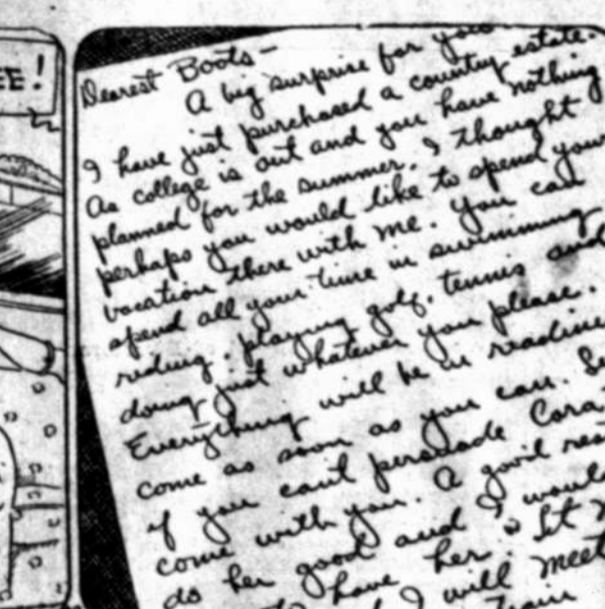 EE!
Dearest Boots—
A big surprise for you
I have just purchased a country estate.
As college is out and you have nothing
planned for the summer, I thought
perhaps you would like to spend your
vacation there with me. You can
spend all your time in swimming
riding, playing golf, tennis and
doing just whatever you please.
Everything will be in readine
come as soon as you can. Se
if you can't persuade Cora
come with you. A good res
do her good and I would
have her. Let
I will meet
train